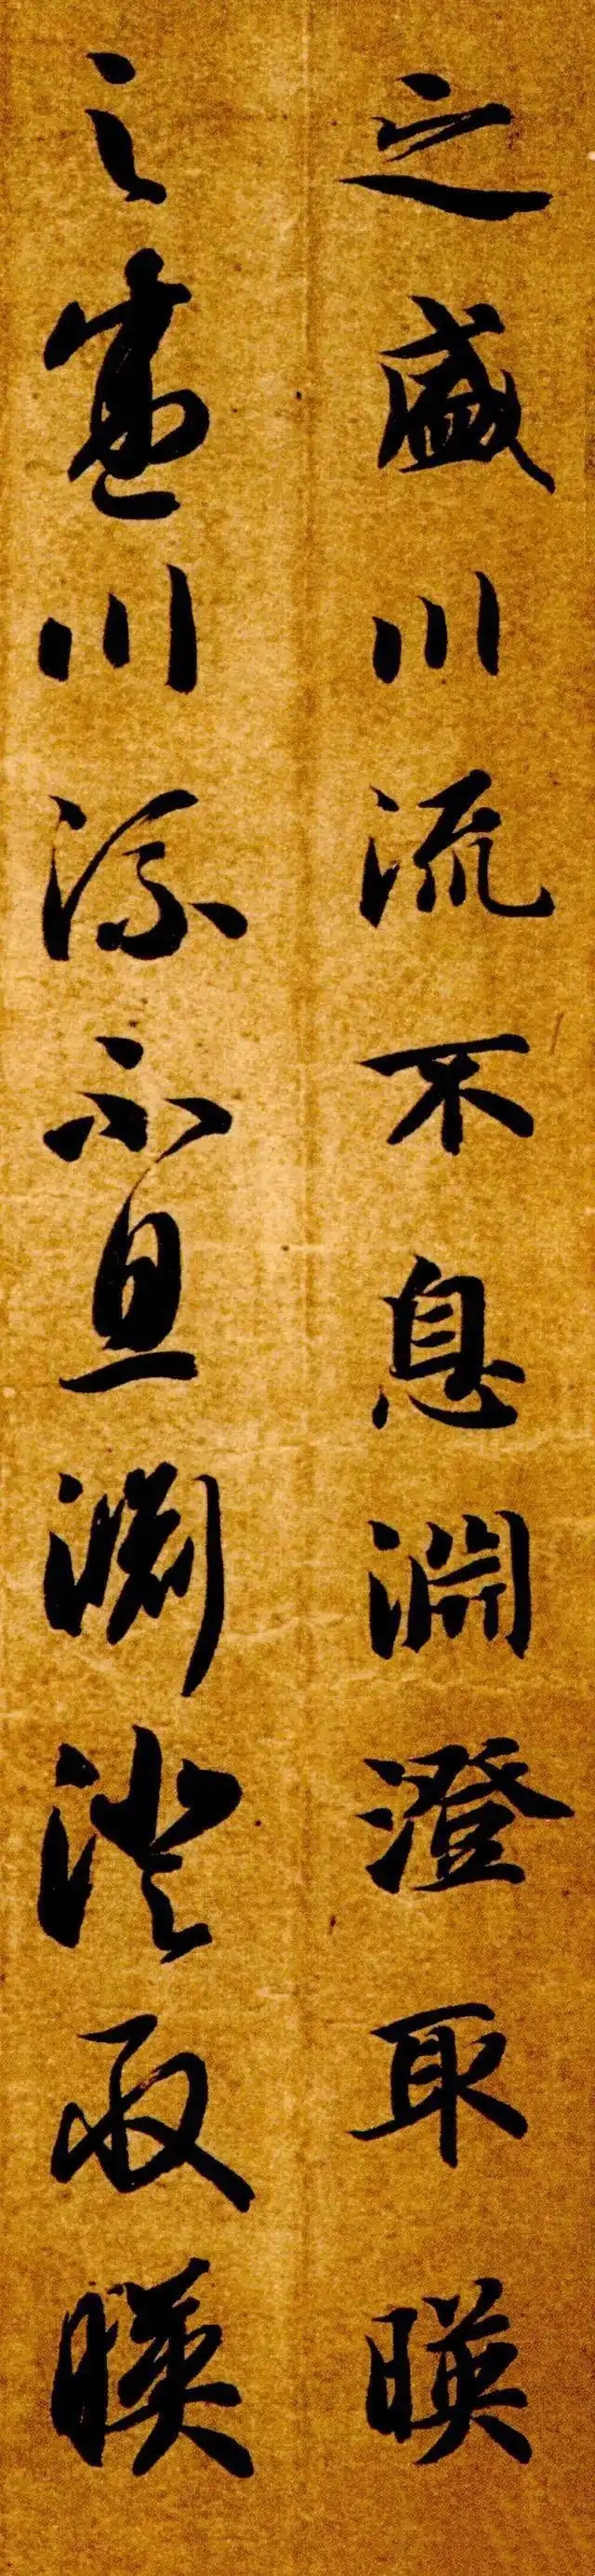 之盛川流不息淵澄取暎
之盛川流不息淵澄取暎